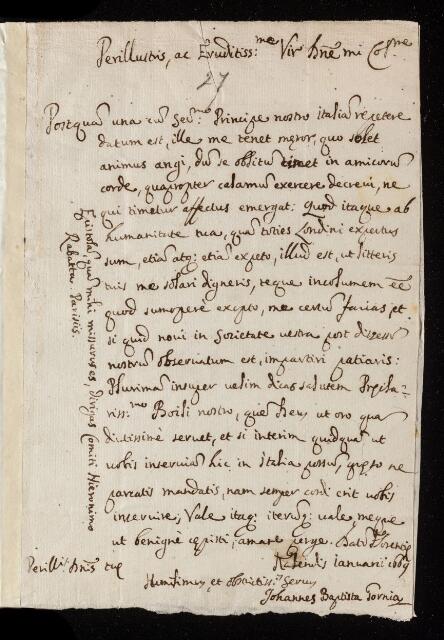 Perillustris, ac Eruditiss:me Vir Dñe mi Colme
27
Postquã una cũ Ser:mo Principe nostro italiã repetere
datum est, ille me tenet męror, quo solet
animus angi, dũ se oblitũ timet in amicorũ
corde, quapropter calamũ exercere decrevi, ne
qui timetur affectus emergat: Quod itaque ab
humanitate tua, quã toties Londini expertus
sum, etiã atq; etiã expeto, illud est, ut litteris
tuis me solari digneris, teque incolumem eẽ
quod sumopere exopto, me certũ facias, et
si quid novi in Societate vestra post discessũ
nostrũ observatum est, impartiri patiaris:
Plurimã insuper velim dicas salutem Pręcla-
riss:mo Boili nostro, quẽ Deus ut oro quã
diutissimè servet, et si interim quidquã ut
vobis inserviã hic in Italia possũ, quęso ne
parcatis mandatis, nam semper cordi erit vobis
inservire; Vale itaq; iterũq; vale, meque
ut benignè cępisti, amare perge. Datũ Florentię
Kalendis Ianuarii 1669
Perill:is Dñis tuę
Humilimus, et obsvitiss:s servus
Johannes Baptista Gornia
Epistolã quam mihi missurus es, dirigas Comiti Hieronimo
Rabatta Parisiis.